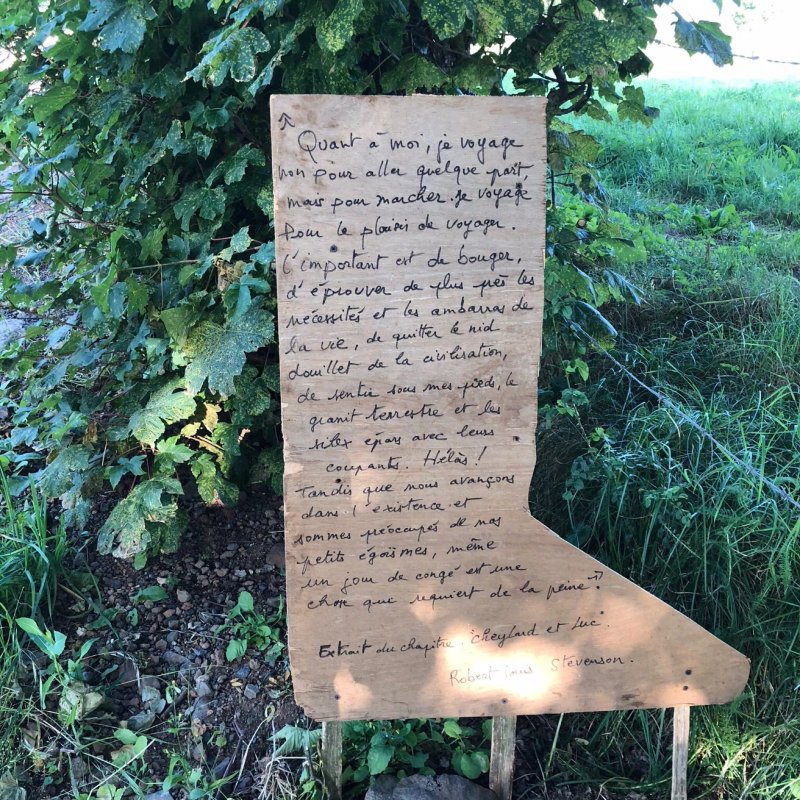 Quant à moi, je voyage
non pour aller quelque part,
mais pour marcher. Je voyage
Pour le plaisir de voyager.
L'important est de bouger,
d'éprouver de plus près les
nécessités et les embarras de
la vie, de quitter le nid
douillet de la civilisation,
de sentir sous mes pieds, le
granit terrestre et les
silex épars avec leurs
coupants. Hélas !
Tandis que nous avançons
dans l'existence et
sommes préocupés de nos
petits égoïsmes, même
un jour de congé est une
chose qui requiert de la peine"
Extrait du chapitre, "Cheylard et Luc".
Robert Stevenson.